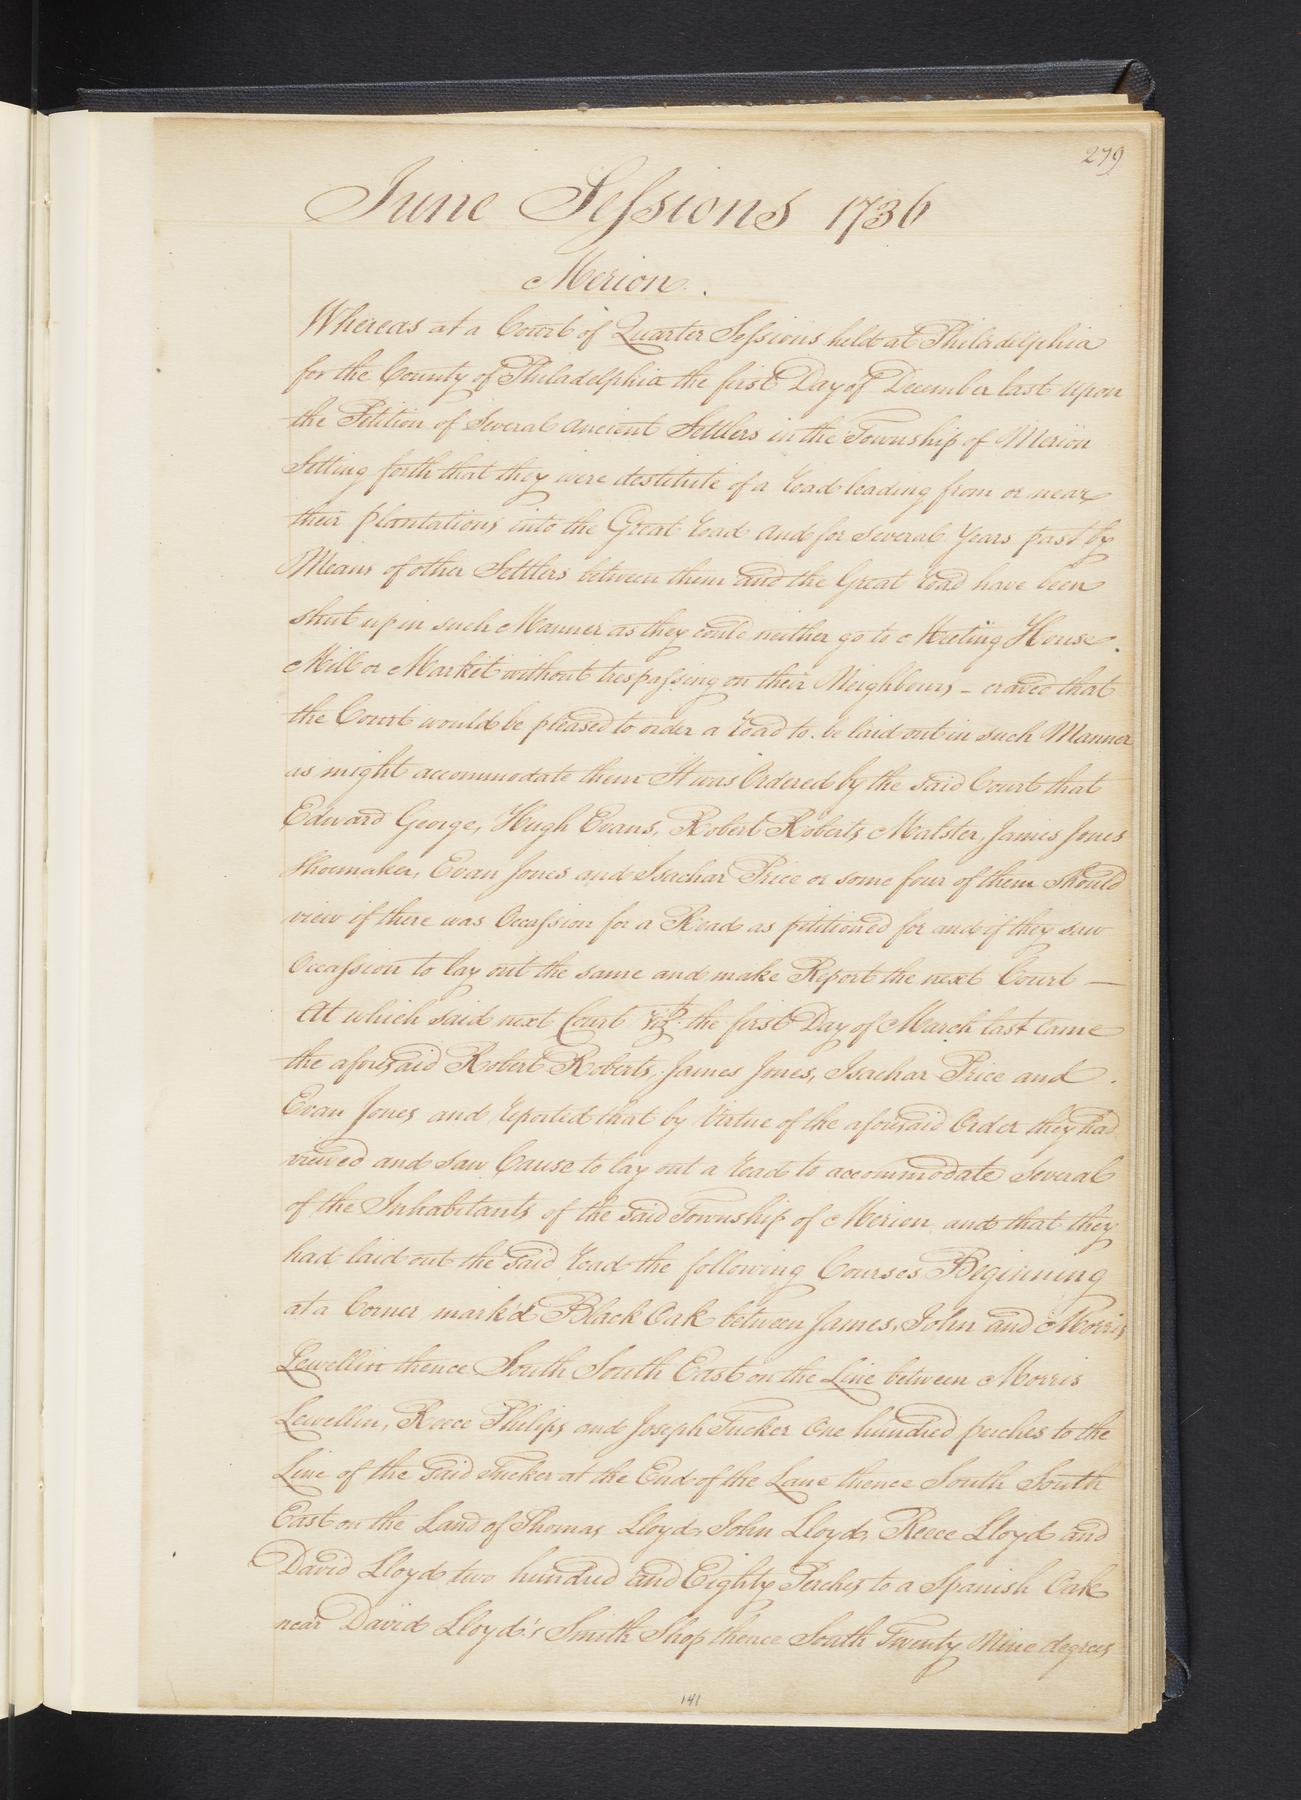 279
June Sessions 1736
Merion.
Whereas at a Court of Quarter Sessions held at Philadelphia
for the County of Philadelphia the first Day of December last upon
the Petition of Several ancient Settlers in the Township of Merion
Setting forth that they were destitute of a road leading from or near
their plantations into the Great road and for several Years past by
Means of other Settlers between them and the Great road have been
shut up in such Manner as they could neither go to Meeting House
Mill or Market without trespassing on their Neighbours - craved that
the Court would be pleased to order a road to be laid out in such Manner
as might accommodate them It was Ordered by the said Court that
Edward George, Hugh Evans, Robert Roberts Malster, James Jones
Shoemaker, Evan Jones and Isachar Price or some four of them Should
view if there was Occassion for a Road as petitioned for and if they saw
Occassion to lay out the same and make Report the next Court —
At which said next Court Vizt the first Day of March last came
the aforesaid Robert Roberts, James Jones, Isachar Price and
Evan Jones and reported that by Virtue of the aforesaid Order they had
viewed and saw Cause to lay out a road to accommodate several
of the Inhabitants of the said Township of Merion and that they
had laid out the said road the following Courses Beginning
at a Corner mark'd Black Oak between James, John and Morris
Lewellin thence South South East on the Line between Morris
Lewellin, Reece Philips and Joseph Tucker One hundred perches to the
Line of the said Tucker at the End of the Lane thence South South
East on the Land of Thomas Lloyd, John Lloyd, Reece Lloyd and
David Lloyd two hundred and Eighty Perches to a Spanish Oak
near David Lloyd's Smith Shop thence South Twenty Nine degrees
141